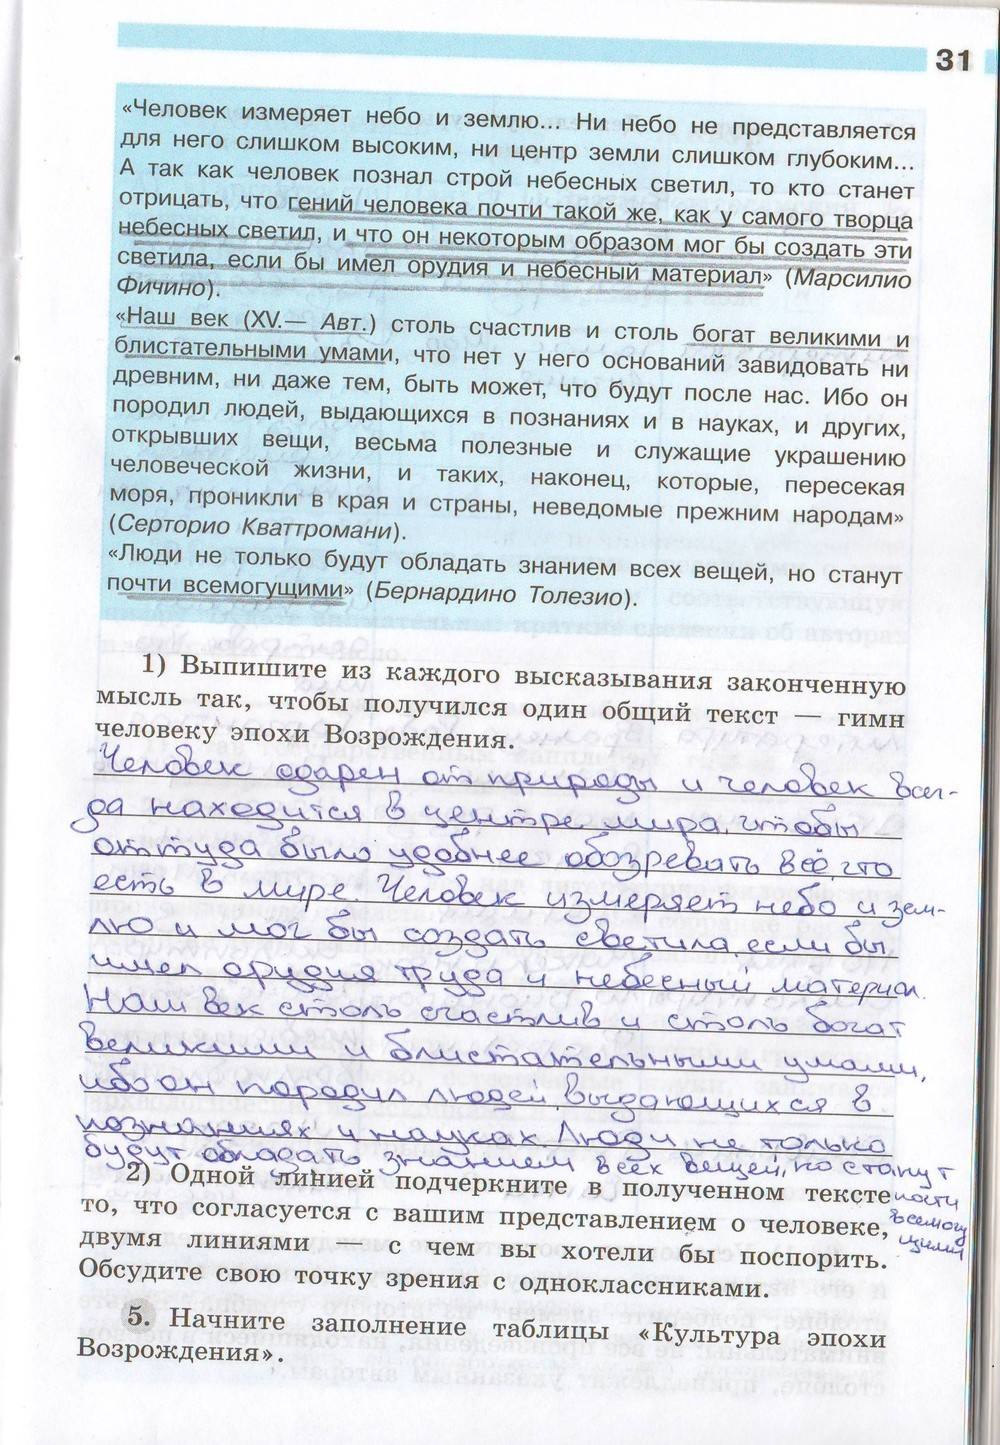 31
«Человек измеряет небо и землю... Ни небо не представляется
для него слишком высоким, ни центр земли слишком глубоким...
А так как человек познал строй небесных светил, то кто станет
отрицать, что гений человека почти такой же, как у самого творца
небесных светил, и что он некоторым образом мог бы создать эти
светила, если бы имел орудия и небесный материал» (Марсилио
Фичино).
«Наш век (XV.— Авт.) столь счастлив и столь богат великими и
блистательными умами, что нет у него оснований завидовать ни
древним, ни даже тем, быть может, что будут после нас. Ибо он
породил людей, выдающихся в познаниях и в науках, и других,
открывших вещи, весьма полезные и служащие украшению
человеческой жизни, и таких, наконец, которые, пересекая
моря, проникли в края и страны, неведомые прежним народам»
(Серторио Кваттромани).
«Люди не только будут обладать знанием всех вещей, но станут
почти всемогущими» (Бернардино Толезио).
1) Выпишите из каждого высказывания законченную
мысль так, чтобы получился один общий текст — гимн
человеку эпохи Возрождения.
Человек одарен от природы и человек всег-
да находится в центре мира, чтобы
оттуда было удобнее обозревать всё, что
есть в мире. Человек измеряет небо и зем-
лю и мог бы создать светила, если бы
имел орудия труда и небесный материал.
Наш век столь счастлив и столь богат
великими и блистательными умами,
ибо он породил людей, выдающихся в
познаниях и науках. Люди не только
будут обладать знанием всех вещей, но станут
почти
всемогу
щими
2) Одной линией подчеркните в полученном тексте
то, что согласуется с вашим представлением о человеке,
двумя линиями — с чем вы хотели бы поспорить.
Обсудите свою точку зрения с одноклассниками.
5. Начните заполнение таблицы «Культура эпохи
Возрождения».